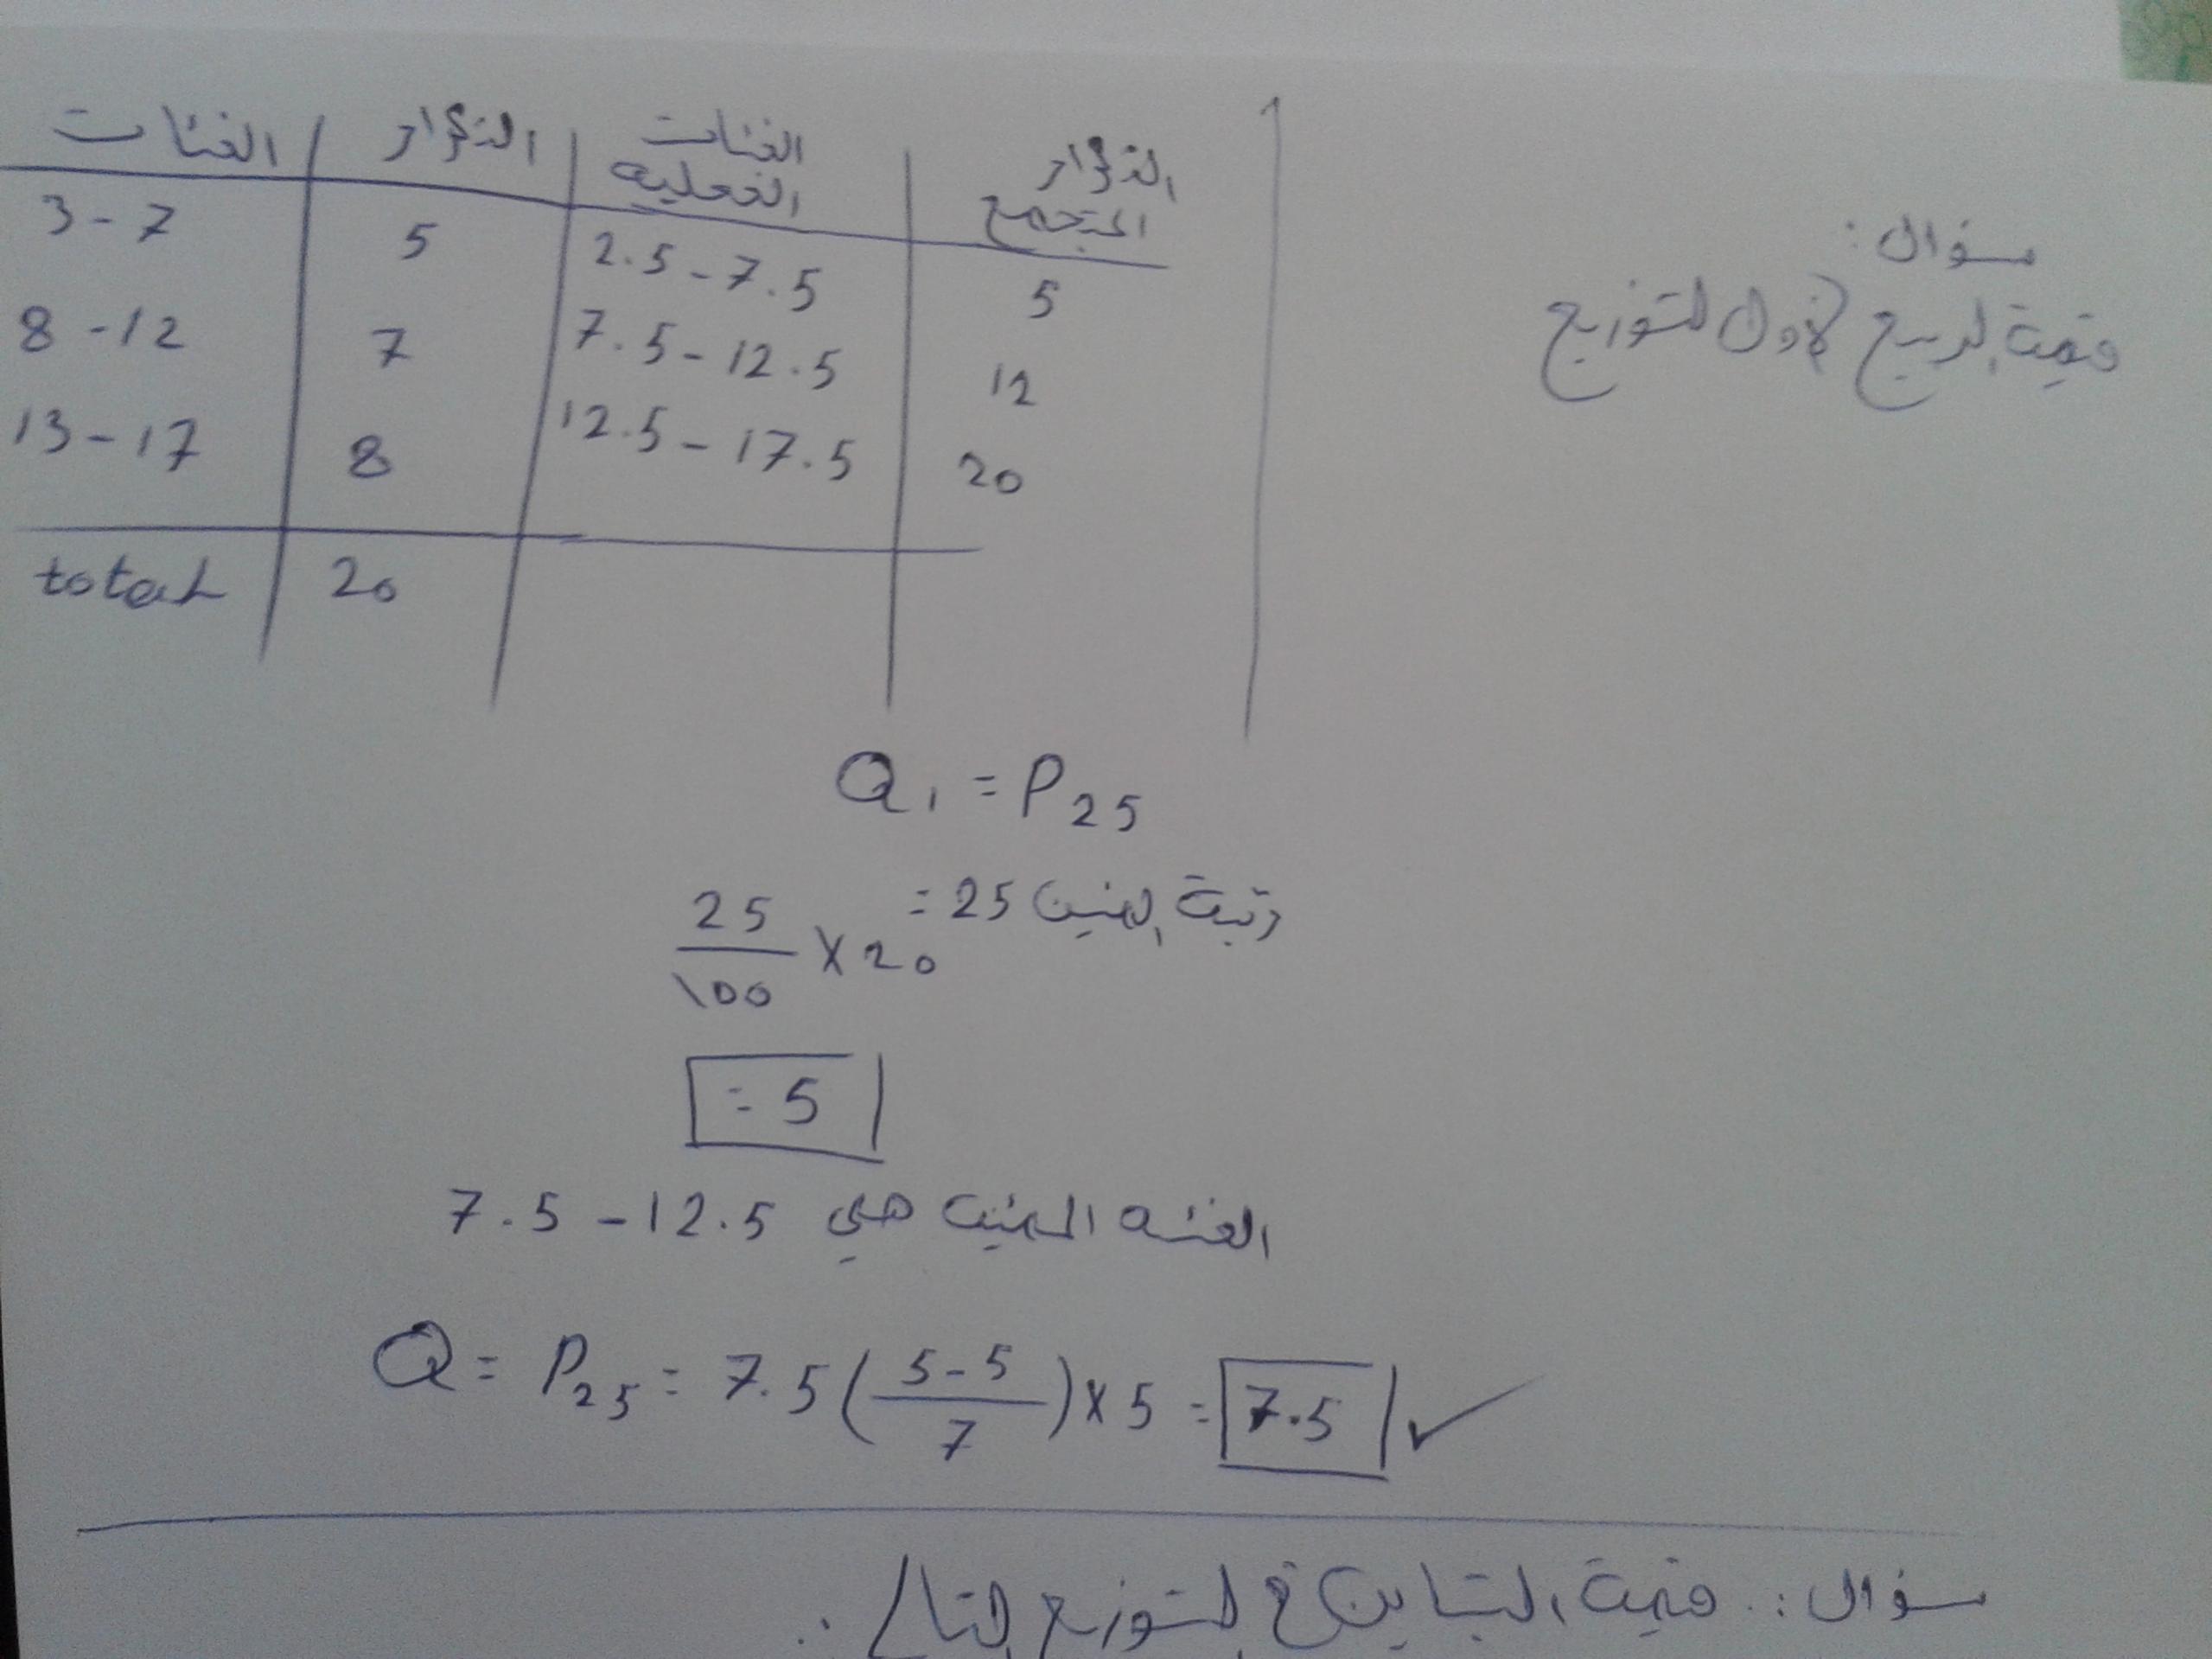 سؤال:
قيمة الربيع الأول للتوزيع
الفئات التكرار الفئات الفعلية التكرار المتجمع
3-7 5 2.5-7.5 5
8-12 7 7.5-12.5 12
13-17 8 12.5-17.5 20
total 20
Q1 = P25
رتبة المئين 25 =
25/100 × 20
= 5
الفئه المئينية هي 7.5-12.5
Q = P25 = 7.5 (5-5/7) × 5 = 7.5 ✓
سؤال: قيمة التباين في التوزيع التالي ..